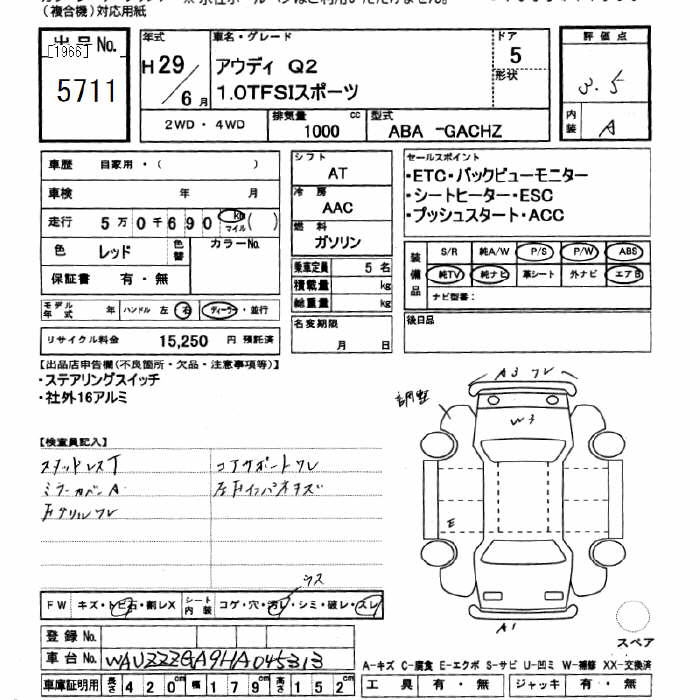 (複合機)対応用紙
出品No.
[1966]
5711
年式
H29/6月
車名・グレード
アウディ Q2
1.0TFSIスポーツ
ドア
5
形状
評価点
3.5
内装
A
2WD・4WD
排気量
1000 cc
型式
ABA -GACHZ
車歴 自家用・( )
車検 年 月
走行 5万0千690 km マイル ( )
色 レッド 色替 カラーNo.
保証書 有・無
モデル年式 年 ハンドル 左 右 ディーラー・並行
リサイクル料金 15,250 円 預託済
シフト
AT
冷房
AAC
燃料
ガソリン
乗車定員 5 名
積載量 kg
総重量 kg
名変期限
月 日
セールスポイント
・ETC・バックビューモニター
・シートヒーター・ESC
・プッシュスタート・ACC
装備品
S/R 純A/W P/S P/W ABS
純TV 純ナビ 革シート 外ナビ エアB
ナビ型番:
後日品
【出品店申告欄(不良箇所・欠品・注意事項等)】
・ステアリングスイッチ
・社外16アルミ
【検査員記入】
スタッドレスT
ミラーカバーA
コアサポートワレ
A3 ワレ
調整
W3
E
A1
ウス
FW キズ・トビ石・割レX
シート内装 コゲ・穴・汚レ・シミ・破レ・スレ
登録No.
車台No. WAUZZZGA9HA045313
車庫証明用 長さ 420cm 幅 179cm 高さ 152cm
スペア
A-キズ C-腐食 E-エクボ S-サビ U-凹ミ W-補修 XX-交換済
工具 有・無 ジャッキ 有・無